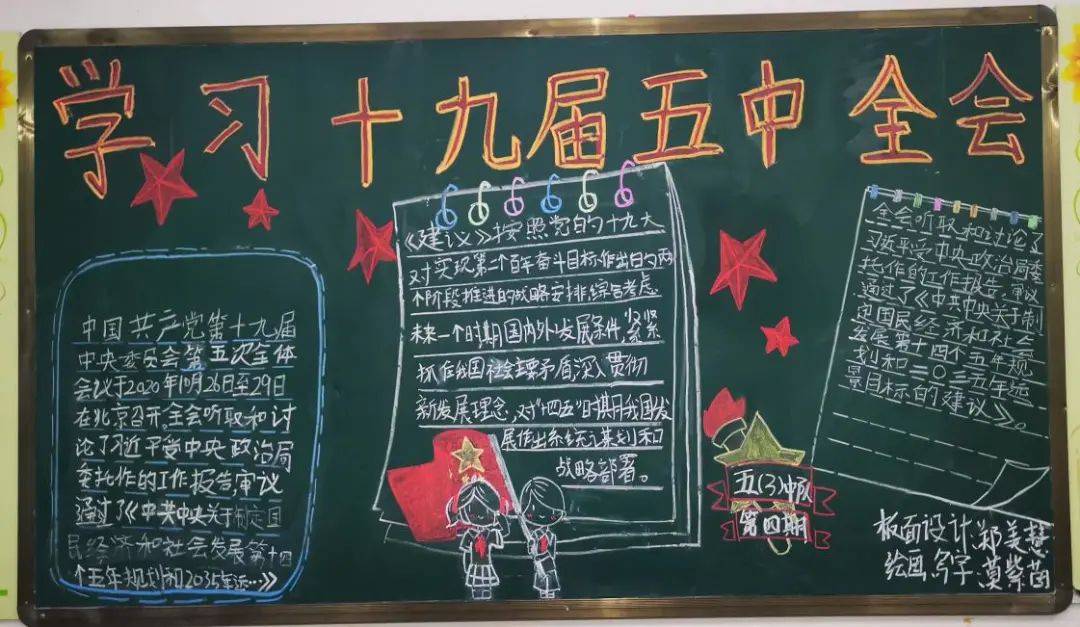 学习十九届五中全会
中国共产党第十九届
中央委员会第五次全体
会议于2020年10月26日至29日
在北京召开.全会听取和讨
论了习近平受中央政治局
委托作的工作报告,审议
通过了《中共中央关于制定国
民经济和社会发展第十四
个五年规划和2035年远…》
《建议》按照党的十九大
对实现第二个百年奋斗目标作出的两
个阶段推进的战略安排,综合考虑
未来一个时期国内外发展条件,紧紧
抓住我国社会主要矛盾,深入贯彻
新发展理念,对“十四五”时期我国发
展作出系统谋划和
战略部署。
全会听取和讨论了
习近平受中央政治局委
托作的工作报告,审议
通过了《中共中央关于制
定国民经济和社会
发展第十四个五年规
划和二〇三五年远
景目标的建议》。
五(3)中队
第四期
板面设计:郑美慧
绘画、写字:莫紫茵